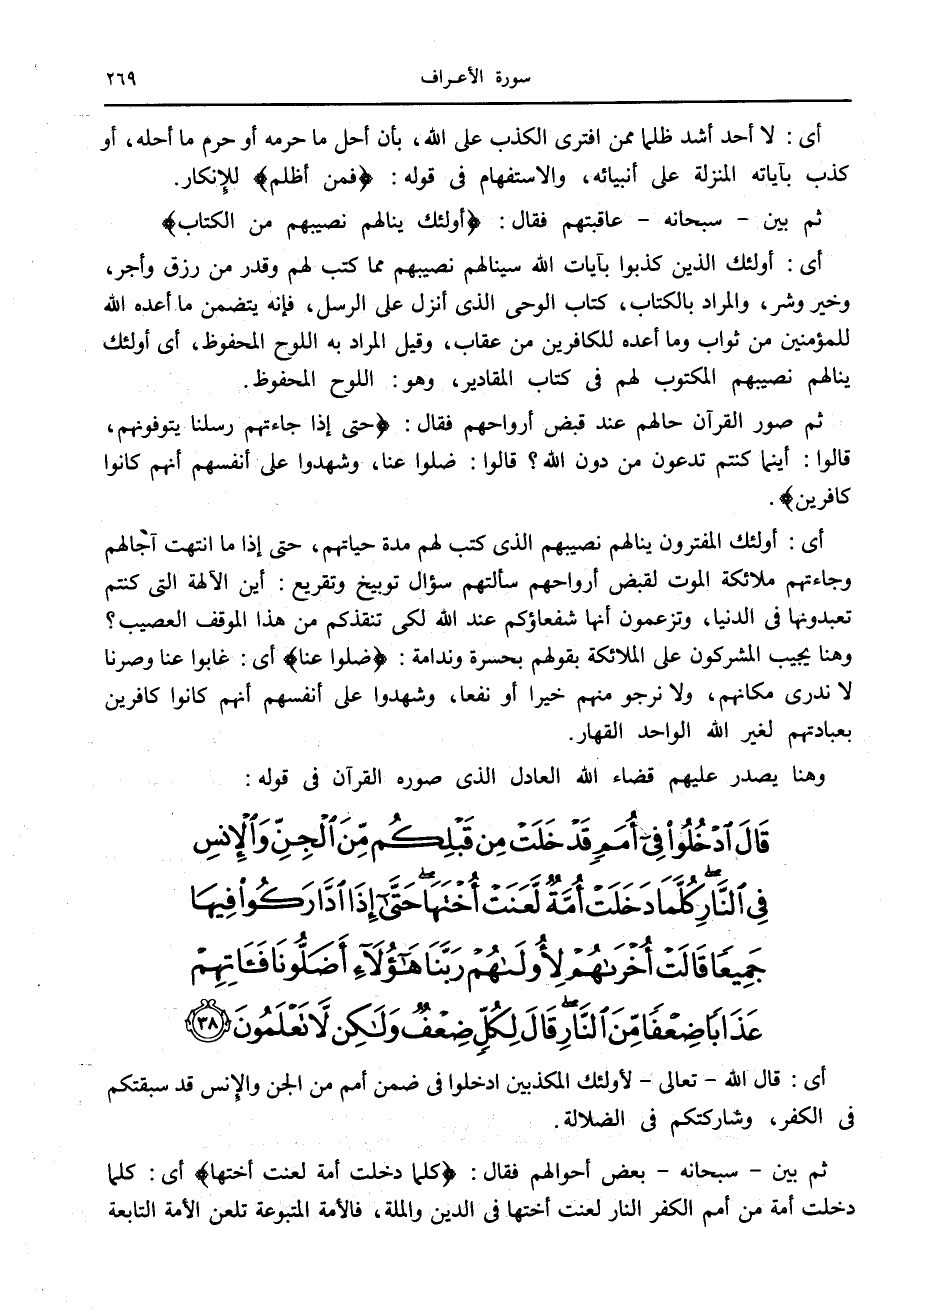 سورة الأعراف ٢٦٩
أى : لا أحد أشد ظلما ممن افترى الكذب على الله، بأن أحل ما حرمه أو حرم ما أحله، أو
كذب بآياته المنزلة على أنبيائه، والاستفهام فى قوله : ﴿فمن أظلم﴾ للإنكار.
ثم بين - سبحانه - عاقبتهم فقال : ﴿أولئك ينالهم نصيبهم من الكتاب﴾
أى : أولئك الذين كذبوا بآيات الله سينالهم نصيبهم مما كتب لهم وقدر من رزق وأجر،
وخير وشر، والمراد بالكتاب، كتاب الوحى الذى أنزل على الرسل، فإنه يتضمن ما أعده الله
للمؤمنين من ثواب وما أعده للكافرين من عقاب، وقيل المراد به اللوح المحفوظ، أى أولئك
ينالهم نصيبهم المكتوب لهم فى كتاب المقادير، وهو : اللوح المحفوظ.
ثم صور القرآن حالهم عند قبض أرواحهم فقال : ﴿حتى إذا جاءتهم رسلنا يتوفونهم،
قالوا : أينما كنتم تدعون من دون الله ؟ قالوا : ضلوا عنا، وشهدوا على أنفسهم أنهم كانوا
كافرين﴾.
أى : أولئك المفترون ينالهم نصيبهم الذى كتب لهم مدة حياتهم، حتى إذا ما انتهت آجالهم
وجاءتهم ملائكة الموت لقبض أرواحهم سألتهم سؤال توبيخ وتقريع : أين الآلهة التى كنتم
تعبدونها فى الدنيا، وتزعمون أنها شفعاؤكم عند الله لكى تنقذكم من هذا الموقف العصيب ؟
وهنا يجيب المشركون على الملائكة بقولهم بحسرة وندامة : ﴿ضلوا عنا﴾ أى : غابوا عنا وصرنا
لا ندرى مكانهم، ولا نرجو منهم خيرا أو نفعا، وشهدوا على أنفسهم أنهم كانوا كافرين
بعبادتهم لغير الله الواحد القهار.
وهنا يصدر عليهم قضاء الله العادل الذى صوره القرآن فى قوله :
قَالَ ٱدْخُلُوا۟ فِىٓ أُمَمٍ قَدْ خَلَتْ مِن قَبْلِكُم مِّنَ ٱلْجِنِّ وَٱلْإِنسِ
فِى ٱلنَّارِ ۖ كُلَّمَا دَخَلَتْ أُمَّةٌ لَّعَنَتْ أُخْتَهَا ۖ حَتَّىٰٓ إِذَا ٱدَّارَكُوا۟ فِيهَا
جَمِيعًا قَالَتْ أُخْرَىٰهُمْ لِأُولَىٰهُمْ رَبَّنَا هَٰٓؤُلَآءِ أَضَلُّونَا فَـَٔاتِهِمْ
عَذَابًا ضِعْفًا مِّنَ ٱلنَّارِ ۖ قَالَ لِكُلٍّ ضِعْفٌ وَلَٰكِن لَّا نَعْلَمُونَ ٣٨
أى : قال الله - تعالى - لأولئك المكذبين ادخلوا فى ضمن أمم من الجن والإنس قد سبقتكم
فى الكفر، وشاركتكم فى الضلالة.
ثم بين - سبحانه - بعض أحوالهم فقال : ﴿كلما دخلت أمة لعنت أختها﴾ أى : كلما
دخلت أمة من أمم الكفر النار لعنت أختها فى الدين والملة، فالأمة المتبوعة تلعن الأمة التابعة